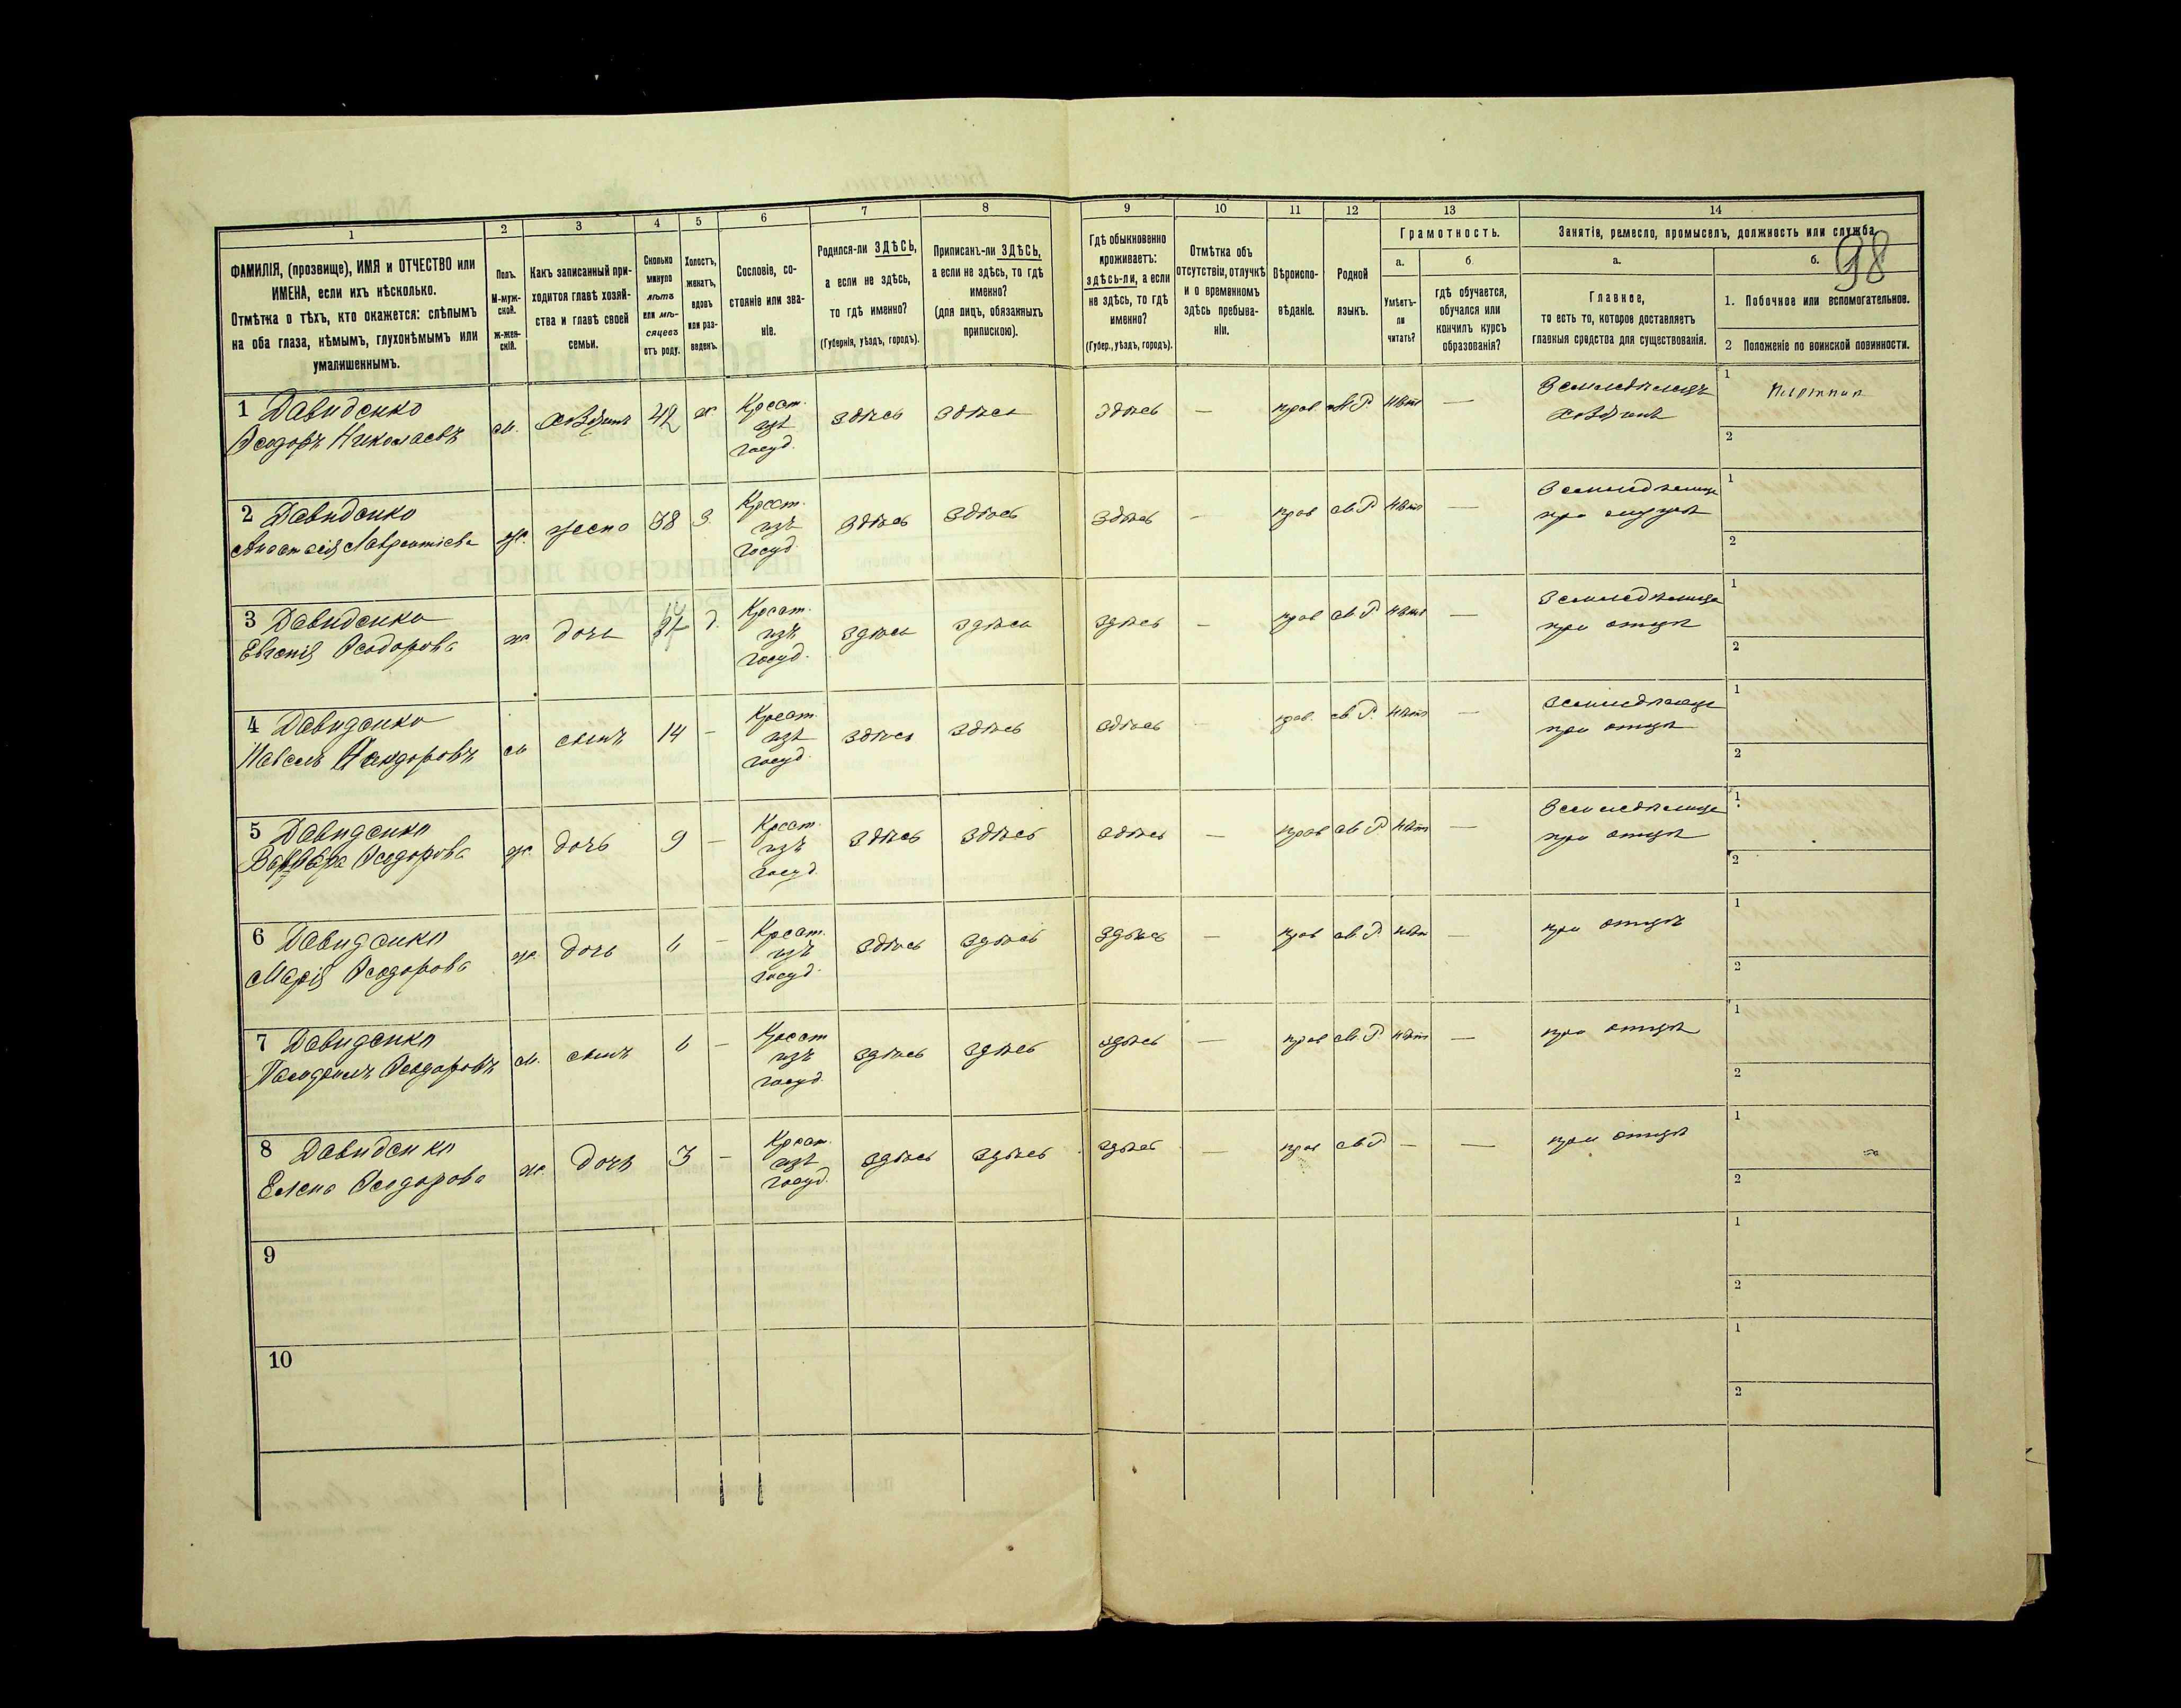 98
1 2 3 4 5 6 7 8 9 10 11 12 13 14
ФАМИЛІЯ, (прозвище), ИМЯ и ОТЧЕСТВО или
ИМЕНА, если ихъ нѣсколько.
Отмѣтка о тѣхъ, кто окажется: слѣпымъ
на оба глаза, нѣмымъ, глухонѣмымъ или
умалишеннымъ.
Полъ.
М-муж-
ской.
Ж-жен-
скій.
Какъ записанный при-
ходится главѣ хозяй-
ства и главѣ своей
семьи.
Сколько
минуло
лѣтъ
или мѣ-
сяцевъ
отъ роду.
Холостъ,
женатъ,
вдовъ
или раз-
веденъ.
Сословіе, со-
стояніе или зва-
ніе.
Родился-ли ЗДѢСЬ,
а если не здѣсь,
то гдѣ именно?
(Губернія, уѣздъ, городъ).
Приписанъ-ли ЗДѢСЬ,
а если не здѣсь, то гдѣ
именно?
(для лицъ, обязанныхъ
припискою).
Гдѣ обыкновенно
проживаетъ:
здѣсь-ли, а если
не здѣсь, то гдѣ
именно?
(Губер., уѣздъ, городъ).
Отмѣтка объ
отсутствіи, отлучкѣ
и о временномъ
здѣсь пребыва-
ніи.
Вѣроиспо-
вѣданіе.
Родной
языкъ.
Грамотность.
а.
Умѣетъ-
ли
читать?
б.
гдѣ обучается,
обучался или
кончилъ курсъ
образованія?
Занятіе, ремесло, промыселъ, должность или служба.
а.
Главное,
то есть то, которое доставляетъ
главныя средства для существованія.
б.
1. Побочное или вспомогательное.
2 Положеніе по воинской повинности.
1 Давиденко
Ѳеодоръ Николаевъ
м. хозяинъ 42 ж. Крест.
изъ
госуд.
здѣсь здѣсь здѣсь — прав. М.Р. нѣтъ —
Земледѣлецъ
хозяинъ
1 плотник
2
2 Давиденко
Анастасія Лаврентіева
ж. жена 38 З. Крест.
изъ
госуд
здѣсь здѣсь здѣсь — прав М.Р. нѣтъ —
Земледѣлица
при мужѣ
1
2
3 Давиденко
Евгенія Ѳеодорова
ж. дочь Д. Крест.
изъ
госуд.
здѣсь здѣсь здѣсь — прав М.Р. нѣтъ —
Земледѣлица
при отцѣ
1
2
4 Давиденко
Павелъ Ѳеодоровъ
м сынъ 14 — Крест.
изъ
госуд.
здѣсь здѣсь здѣсь — прав. М.Р. нѣтъ —
при отцѣ
1
2
5 Давиденко
Варвара Ѳеодорова
ж. дочь 9 — Крест.
изъ
госуд.
здѣсь здѣсь здѣсь — прав М.Р. нѣтъ —
Земледѣлица
при отцѣ
1
2
6 Давиденко
Марія Ѳеодорова
ж. дочь 6 — Крест.
изъ
госуд.
здѣсь здѣсь здѣсь — прав М.Р. нѣтъ —
при отцѣ
1
2
7 Давиденко
Ѳеодоровъ
м. сынъ 6 — Крест
изъ
госуд.
здѣсь здѣсь здѣсь — прав М.Р. нѣтъ —
при отцѣ
1
2
8 Давиденко
Елена Ѳеодорова
ж. дочь 3 — Крест.
изъ
госуд.
здѣсь здѣсь здѣсь — прав М.Р. — —
при отцѣ
1
2
9
1
2
10
1
2